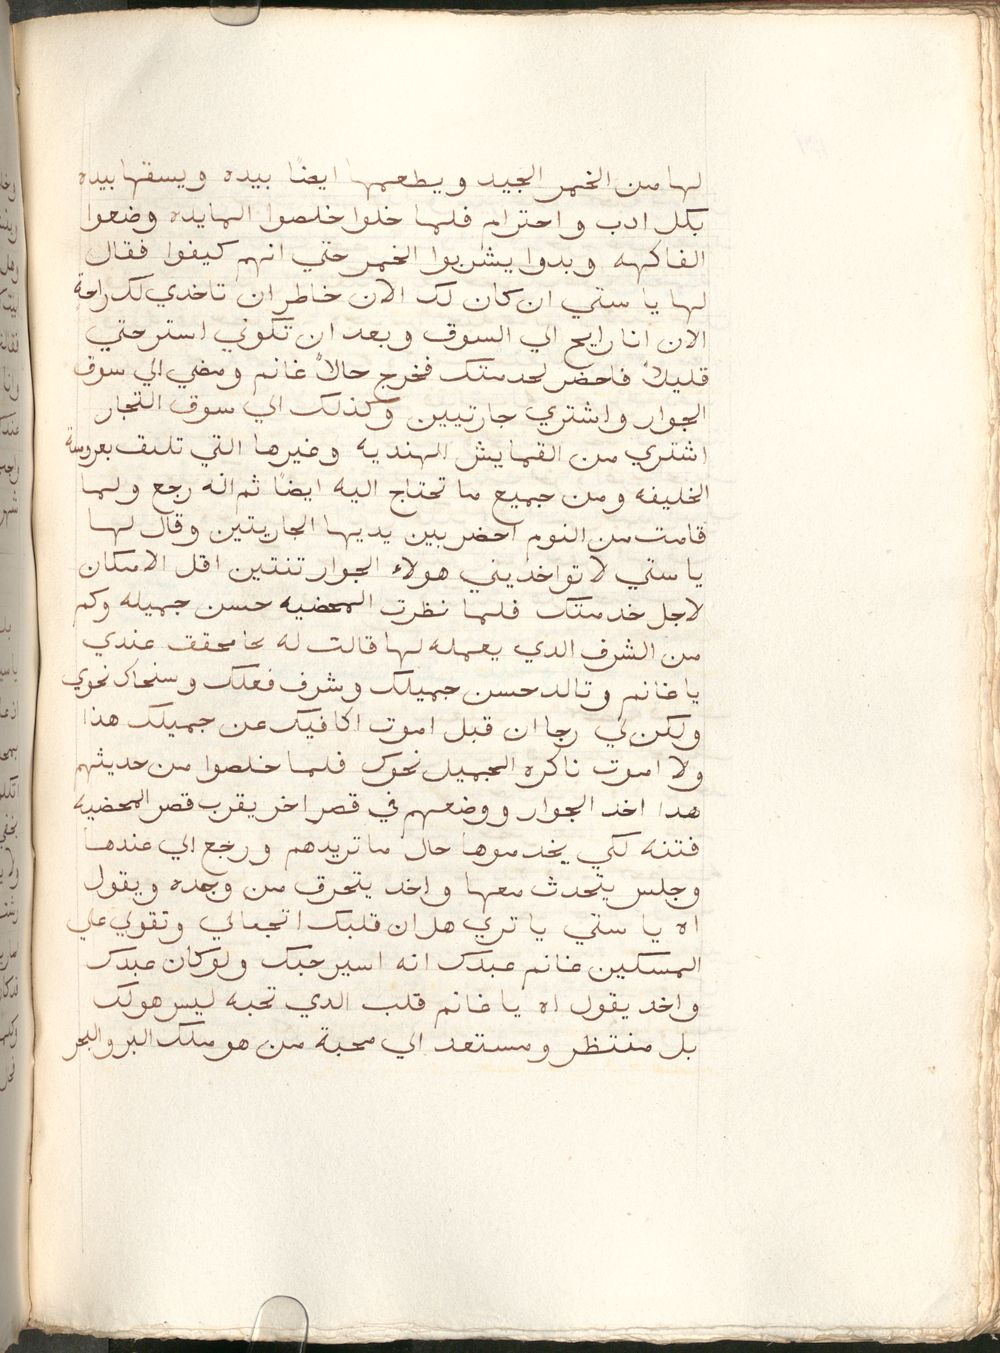 لها من الخمر الجيد ويطعمها ايضًا بيده ويسقها بيده
بكل ادب واحترام فلما خلوا خلصوا المايده وضعوا
الفاكهه وبدوا يشربوا الخمر حتي انهم كيفوا فقال
لها يا ستي ان كان لك الان خاطر ان تاخدي لك راحة
الان انا رايح الي السوق وبعد ان تكوني استرحتي
قليلاً فاحضر لخدمتك فخرج حالاً غانم ومضي الي سوق
الجوار واشتري جارتيين وكذلك الي سوق التجار
اشتري من القمايش الهنديه وغيرها التي تليق بعروسة
الخليفه ومن جميع ما تحتاج اليه ايضًا ثم انه رجع ولما
قامت من النوم احضر بين يديها الجاريتين وقال لها
يا ستي لا تواخديني هولاء الجوار تنتين اقل الامكان
لاجل خدمتك فلما نظرت المحضيه حسن جميله وكم
من الشرف الدي يعمله لها قالت له محقق عندي
يا غانم وتالد حسن جميلك وشرف فعلك وسخاك نحوي
ولكن لي رجا ان قبل اموت اكافيك عن جميلك هذا
ولا اموت ناكره الجميل نحوك فلما خلصوا من حديثهم
هدا اخد الجوار ووضعهم في قصر اخر يقرب قصر المحضيه
فتنه لكي يخدموها حال ما تريدهم ورجع الي عندها
وجلس يتحدث معها واخد يتحرق من وجده ويقول
اه يا ستي يا تري هل ان قلبك اتجعالي وتقولي علي
المسكين غانم عبدك انه اسير حبك ولو كان عبدك
واخد يقول اه يا غانم قلب الدي تحبه ليس هو لك
بل منتظر ومستعد الي محبة من هو ملك البر والبحر